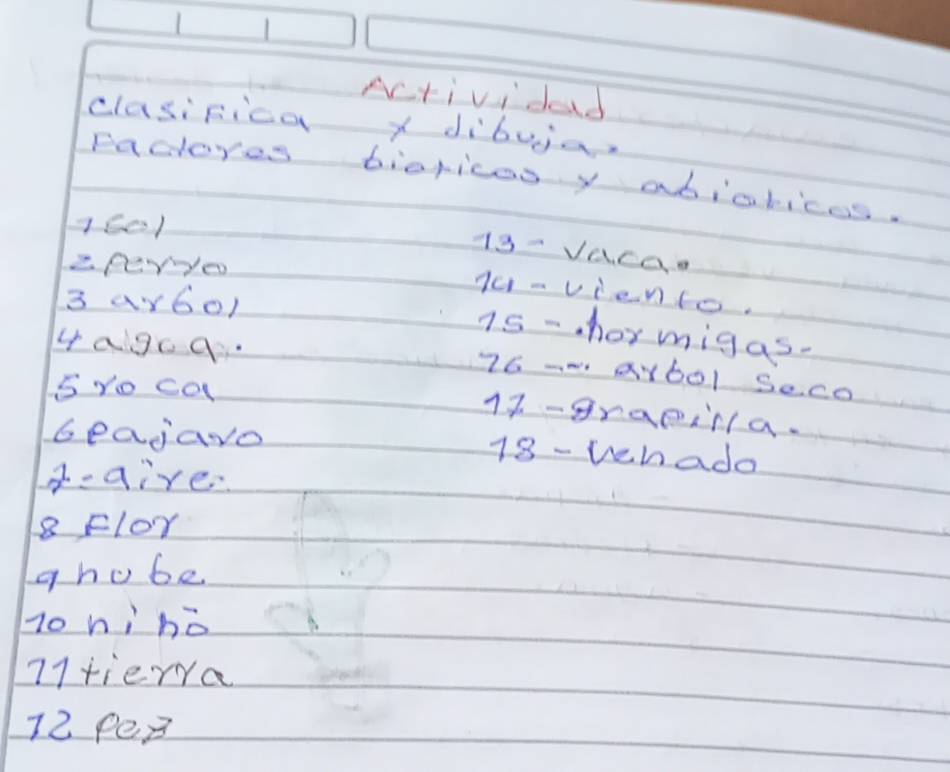 Actividad
clasifica y dibuja.
Factores bioticos y abioticos.
1 sol
2 perro
3 arbol
4 agua.
5 roca
6 pajaro
7-aire.
8 Flor
9 nube
10 niño
11 tierra
12 pez
13- vaca.
14-viento.
15-.hormigas.
16 -- arbol seco
17-grapilla.
18-venado